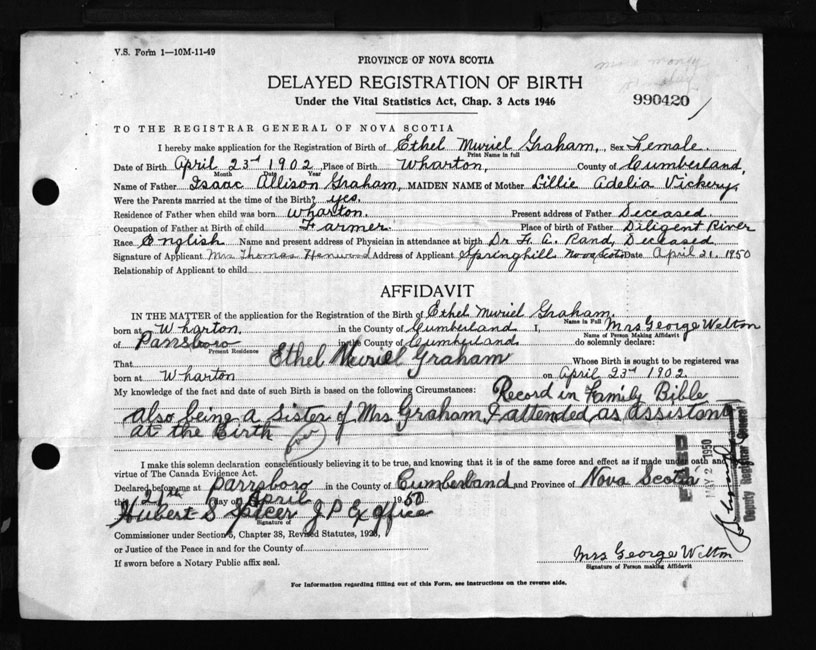 V.S. Form 1—10M-11-49
PROVINCE OF NOVA SCOTIA
DELAYED REGISTRATION OF BIRTH
Under the Vital Statistics Act, Chap. 3 Acts 1946
990420
TO THE REGISTRAR GENERAL OF NOVA SCOTIA
I hereby make application for the Registration of Birth of Ethel Muriel Graham, Sex Female
Print Name in full
Date of Birth April 23rd 1902 Place of Birth Wharton, County of Cumberland,
Month Date Year
Name of Father Isaac Allison Graham, MAIDEN NAME of Mother Lillie Adelia Vickery,
Were the Parents married at the time of the Birth? yes.
Residence of Father when child was born Wharton. Present address of Father Deceased.
Occupation of Father at Birth of child Farmer. Place of birth of Father Diligent River
Race English Name and present address of Physician in attendance at birth Dr. F. A. Rand, Deceased.
Signature of Applicant Mrs Thomas Henwood Address of Applicant Springhill Nova Scotia Date April 21. 1950
Relationship of Applicant to child
AFFIDAVIT
IN THE MATTER of the application for the Registration of the Birth of Ethel Muriel Graham.
Name in Full
born at Wharton. in the County of Cumberland I, Mrs George Welton
Name of Person Making Affidavit
of Parrsboro in the County of Cumberland do solemnly declare:
Present Residence
That Ethel Muriel Graham Whose Birth is sought to be registered was
born at Wharton on April 23rd 1902.
My knowledge of the fact and date of such Birth is based on the following Circumstances: Record in Family Bible
also being a sister of Mrs Graham, I attended as assistant
at the Birth
I make this solemn declaration conscientiously believing it to be true, and knowing that it is of the same force and effect as if made under oath and
virtue of The Canada Evidence Act.
Declared before me at Parrsboro in the County of Cumberland and Province of Nova Scotia
this 27th day of April 1950
Hubert S Spicer J P Ex office
Signature of
Commissioner under Section 5, Chapter 38, Revised Statutes, 1923,
or Justice of the Peace in and for the County of
If sworn before a Notary Public affix seal.
Mrs George Welton
Signature of Person making Affidavit
For Information regarding filling out of this Form, see instructions on the reverse side.
MAY 2 1950
Deputy Registrar General